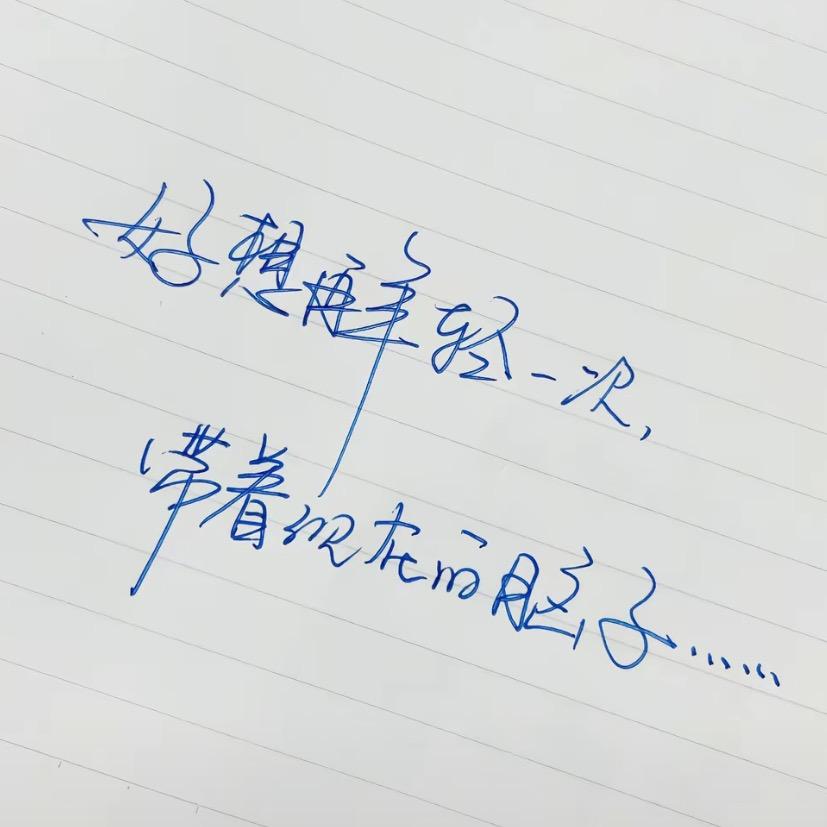 好想再年轻一次，
带着现在的脑子……